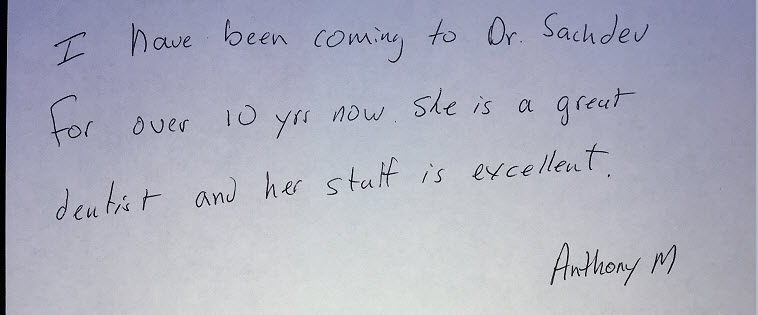 I have been coming to Dr. Sachdev
for over 10 yrs now. She is a great
dentist and her staff is excellent.
Anthony M